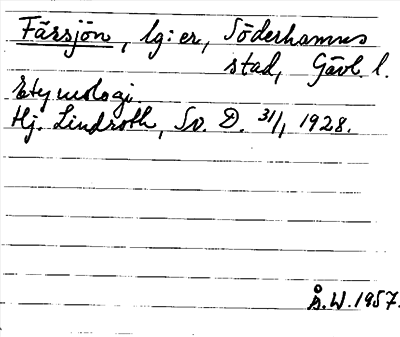 Färsjön, lg:er, Söderhamns
stad, Gävl. l.
Etymologi
Hj. Lindroth, Sv. D. 31/1 1928.
Å.W. 1957.